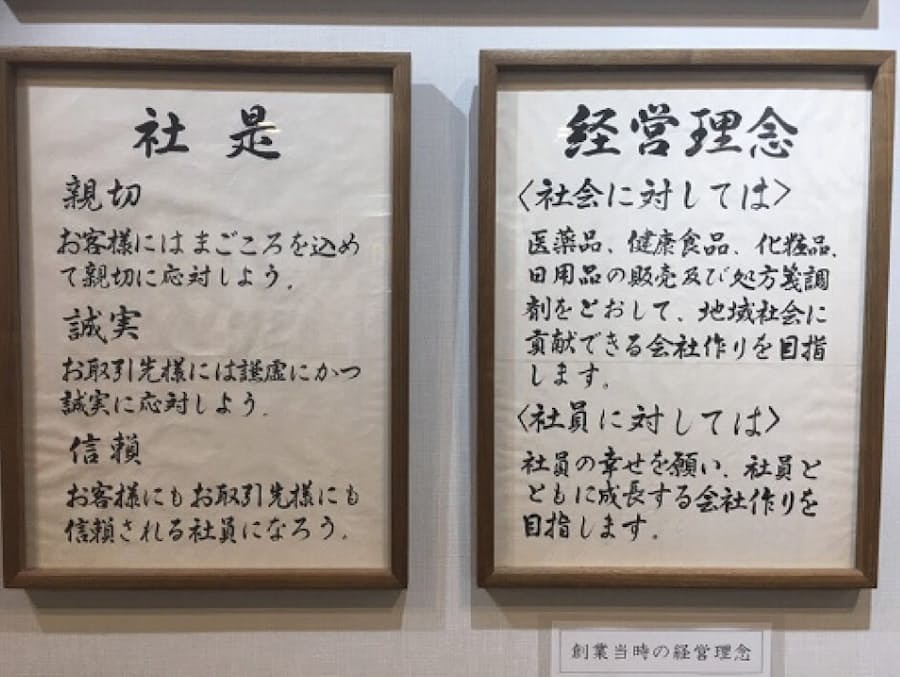 社是
親切
お客様にはまごころを込め
て親切に応対しよう。
誠実
お取引先様には謙虚にかつ
誠実に応対しよう。
信頼
お客様にもお取引先様にも
信頼される社員になろう。
経営理念
〈社会に対しては〉
医薬品、健康食品、化粧品、
日用品の販売及び処方箋調
剤をとおして、地域社会に
貢献できる会社作りを目指
します。
〈社員に対しては〉
社員の幸せを願い、社員と
ともに成長する会社作りを
目指します。
創業当時の経営理念